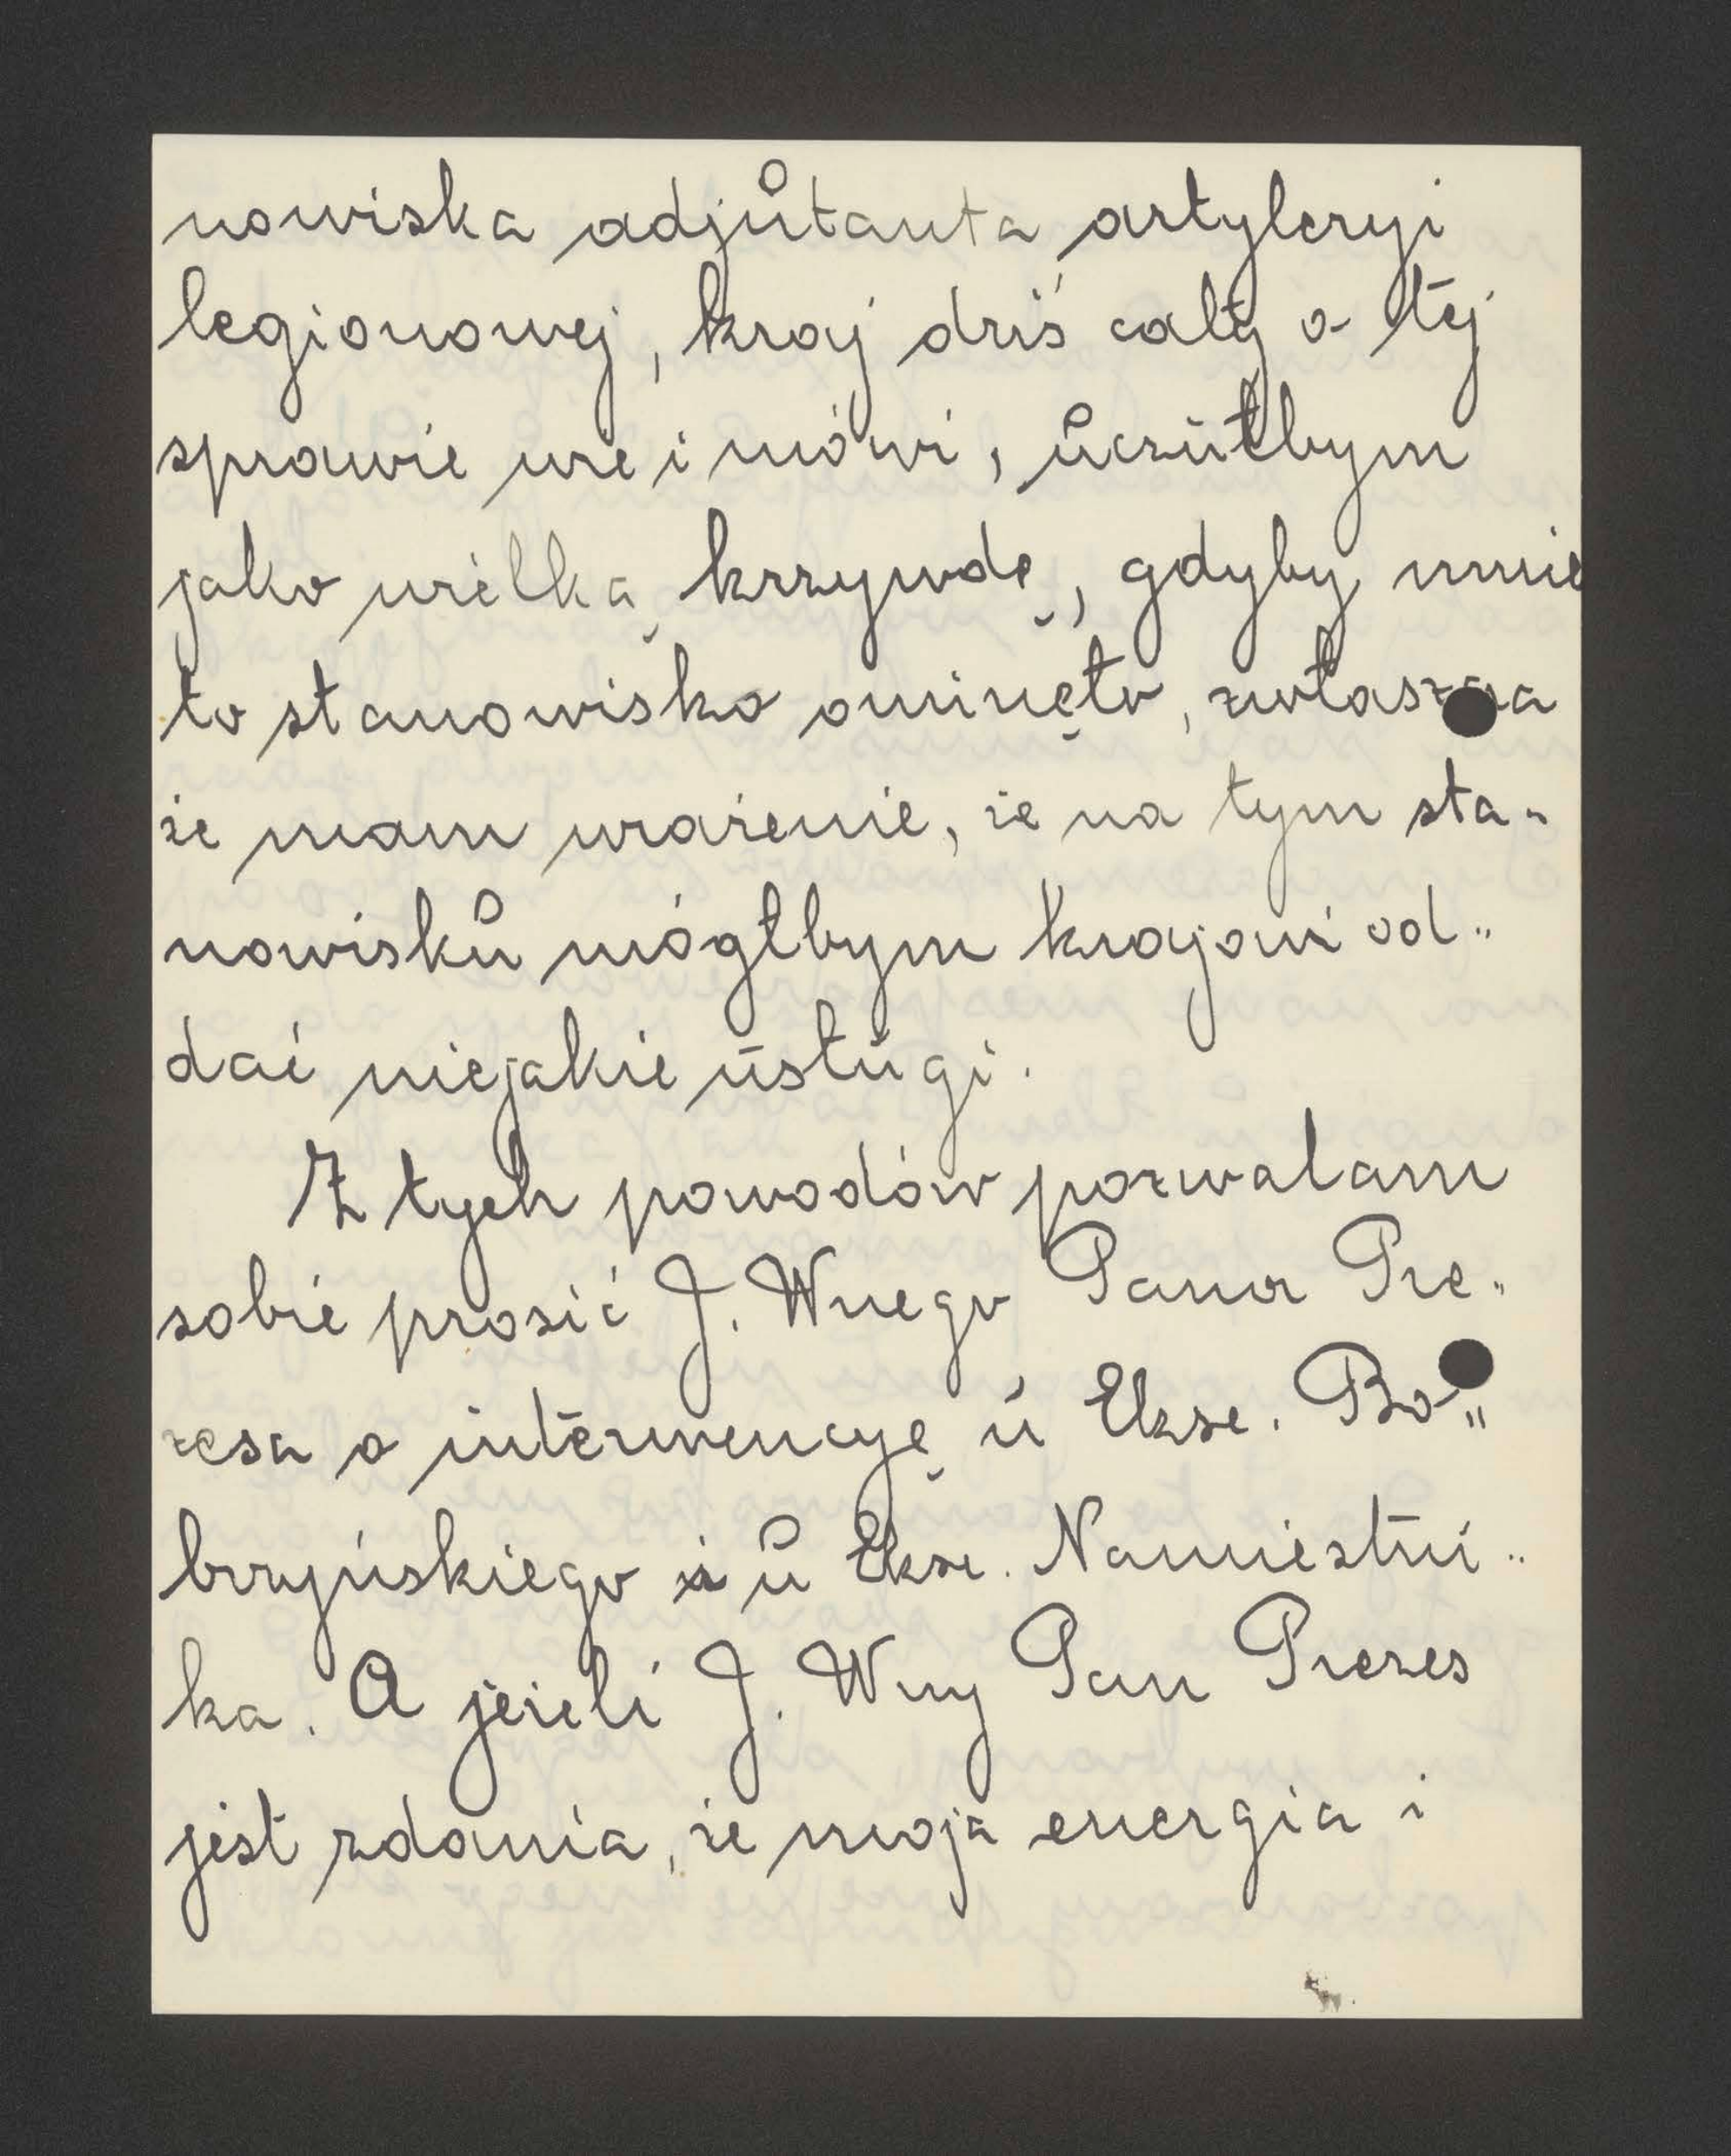 nowiska adjutanta artyleryi
legionowej, kraj dziś cały o tej
sprawie wie i mówi, uczułbym
jako wielką krzywdę, gdyby mnie
to stanowisko ominęło, zwłaszcza
że mam wrażenie, że na tym sta-
nowisku mógłbym krajowi od-
dać niejakie usługi.
Z tych powodów pozwalam
sobie prosić J. Wnego Pana Pre-
zesa o interwencyę u Eksc. Bo-
brzyńskiego i u Eksc. Namiestni-
ka. A jeżeli J. Wny Pan Prezes
jest zdania, że moja energia i